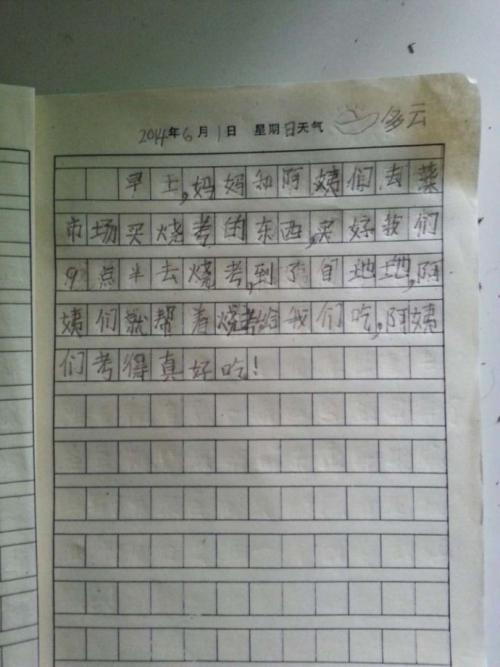 2014年6月1日 星期日天气 多云
早上,妈妈和阿姨们去菜
市场买烧考的东西,买好我们
9点半去烧考,到了目地地,阿
姨们就帮着烧考给我们吃,阿姨
们考得真好吃!